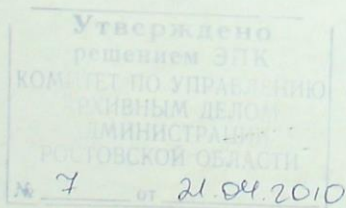 Утверждено
решением ЭПК
КОМИТЕТ ПО УПРАВЛЕНИЮ
АРХИВНЫМ ДЕЛОМ
АДМИНИСТРАЦИИ
РОСТОВСКОЙ ОБЛАСТИ
№ 7 от 21.04.2010